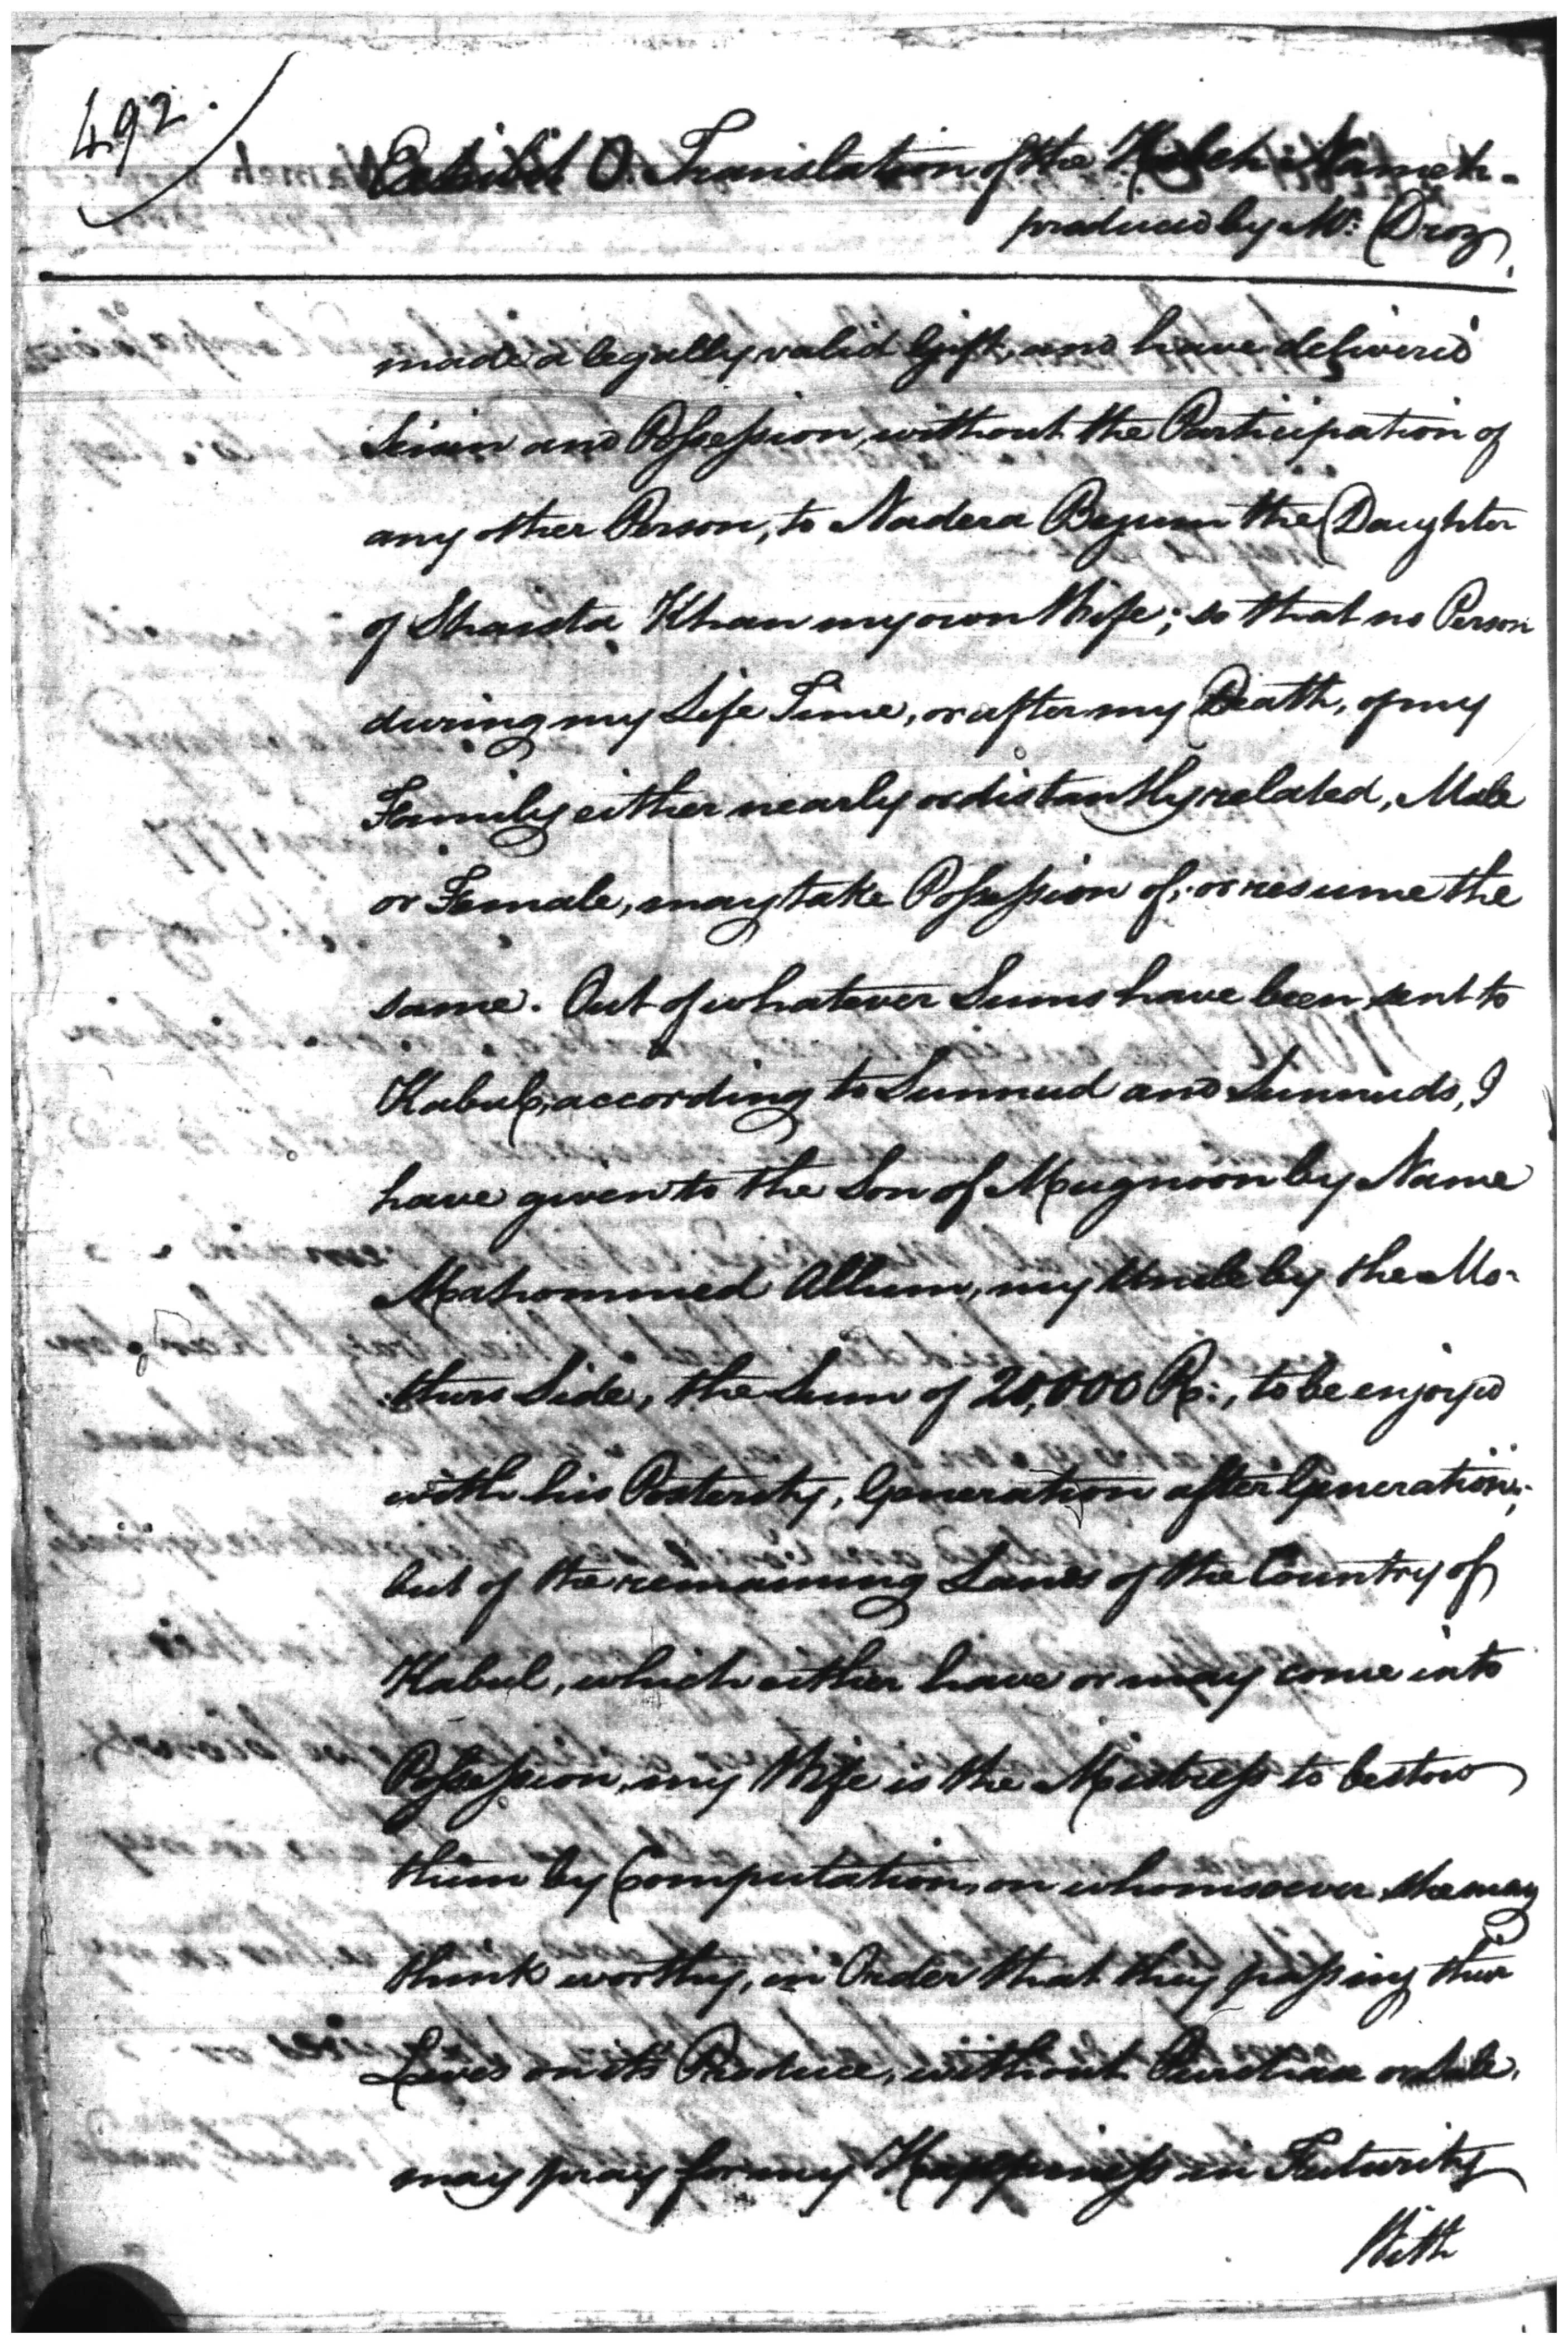 492.
Exhibit O Translation of the Hibeh Nameh
produced by Mr. Droz.
made a legally valid Gift, and have deliver'd
Seisin and Possession, without the Participation of
any other Person, to Nadera Begum the Daughter
of Shaista Khan my own Wife; so that no Person
during my Life Time, or after my Death, of my
Family either nearly or distantly related, Male
or Female, may take Possession of, or resume the
same. Out of whatever Sums have been sent to
Kabul, according to Sunnud and Sunnuds, I
have given to the Son of Mugnoon by Name
Mahommed Allum, my Uncle by the Mo-
thers Side, the Sum of 20,000 Rs:, to be enjoyed
with his Posterity, Generation after Generation;
but of the remaining Lands of the Country of
Kabul, which either have or may come into
Possession, my Wife is the Mistress to bestow
them by Computation, on whomsoever she may
think worthy, in Order that they passing their
Lives on its Produce, without Purchase or Sale,
may pray for my Happiness in Futurity
With